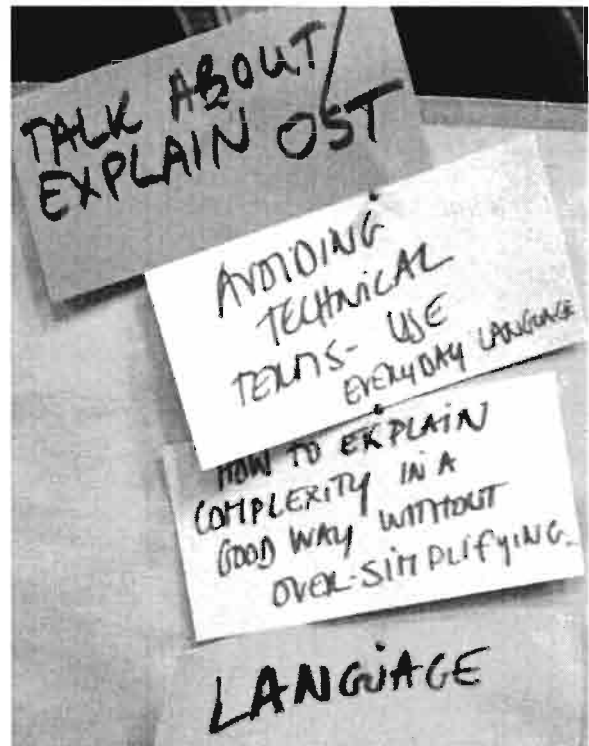 TALK ABOUT/
EXPLAIN OST
AVOIDING
TECHNICAL
TERMS- USE
EVERYDAY LANGUAGE
HOW TO EXPLAIN
COMPLEXITY IN A
GOOD WAY WITHOUT
OVER-SIMPLIFYING.
LANGUAGE